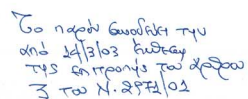 Το παρόν συνοδεύει την
από 14/3/03 Έκθεση
της Επιτροπής του άρθρου
3 του Ν. 2971/01